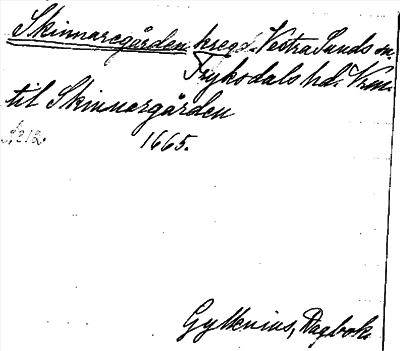 Skinnaregården kregd. Västra Sunds sn.
Fryksdals hd. Vrm.
til Skinnergården
1665.
Gyllenius, Dagbok.